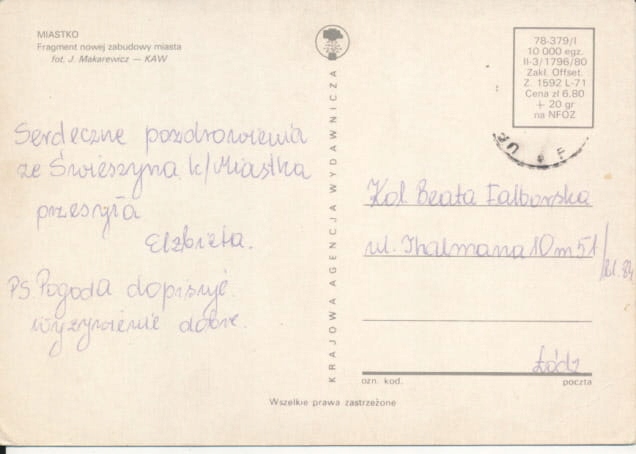 MIASTKO
Fragment nowej zabudowy miasta
fot. J. Makarewicz — KAW
Serdeczne pozdrowienia
ze Świeszyna k/Miastka
przesyła
Elżbieta.
PS. Pogoda dopisuje.
wyżywienie dobre.
KRAJOWA AGENCJA WYDAWNICZA
78-379/I
10 000 egz.
II-3/1796/80
Zakł. Offset.
Z. 1592 L-71
Cena zł 6.80
+ 20 gr
na NFOZ
Kol Beata Falborska
ul. Thalmana 10 m 51/bl. 84
Łódz
ozn. kod. poczta
Wszelkie prawa zastrzeżone